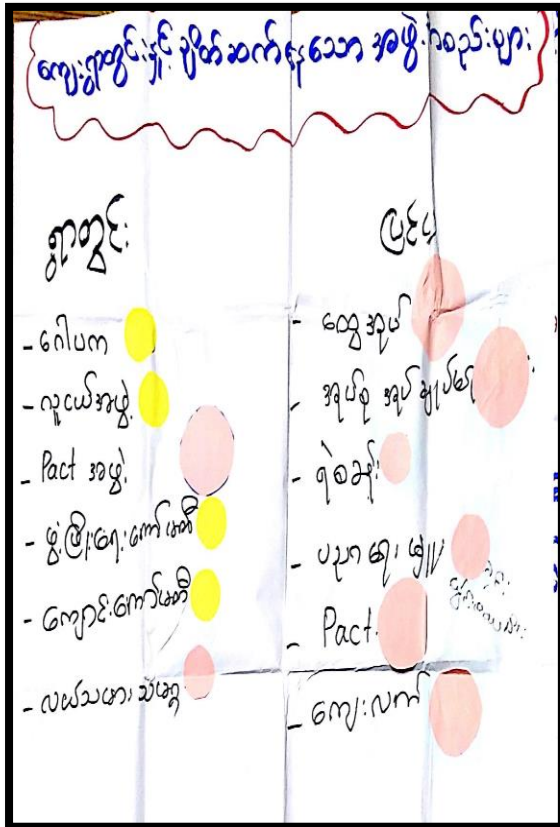 ကျေးရွာတွင်းနှင့် ချိတ်ဆက်နေသော အဖွဲ့အစည်းများ
ရွာတွင်း
- ဂေါပက
- လူငယ်အဖွဲ့
- Pact အဖွဲ့
- ဖွံ့ဖြိုးရေးကော်မတီ
- ကျောင်းကော်မတီ
- လယ်သမား သမဂ္ဂ
ပြင်ပ
- ထွေအုပ်
- အုပ်စု အုပ်ချုပ်ရေး
- ရဲစခန်း
- ပညာရေး၊
- Pact
- ကျေးလက်